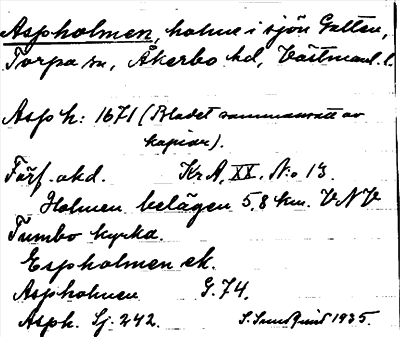 Aspholmen, holme i sjön Gatten,
Torpa sn, Åkerbo hd, Västmanl. l.
Asph: 1671 (Bladet sammansatt av
kopior).
Förf. okd. KrA, XX. No 13.
Holmen belägen 5,8 km. VNV
Tumbo kyrka.
Espholmen ek.
Aspholmen G. 74.
Asph. Sj. 242. S. Sundquist 1935.